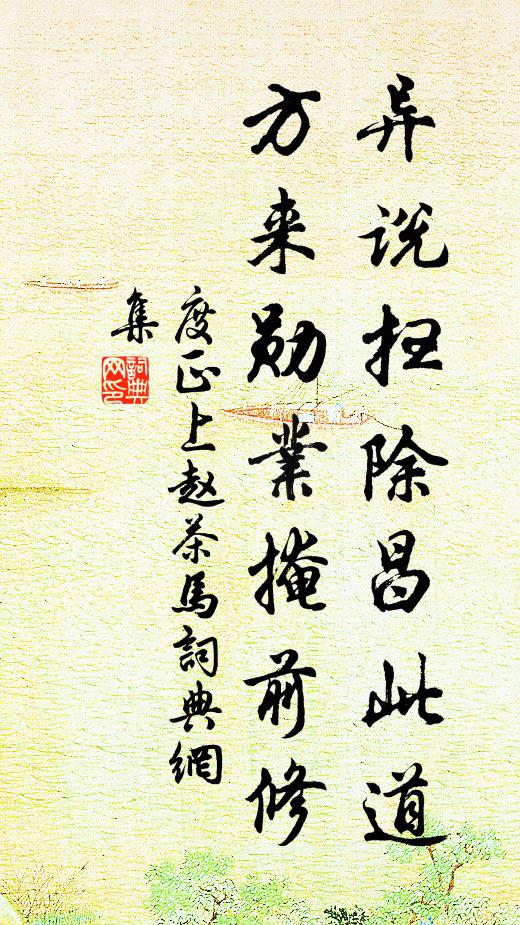 异说扫除昌此道
方来勋業掩前修
度正上赵茶馬詞典網
集
詞典
网印